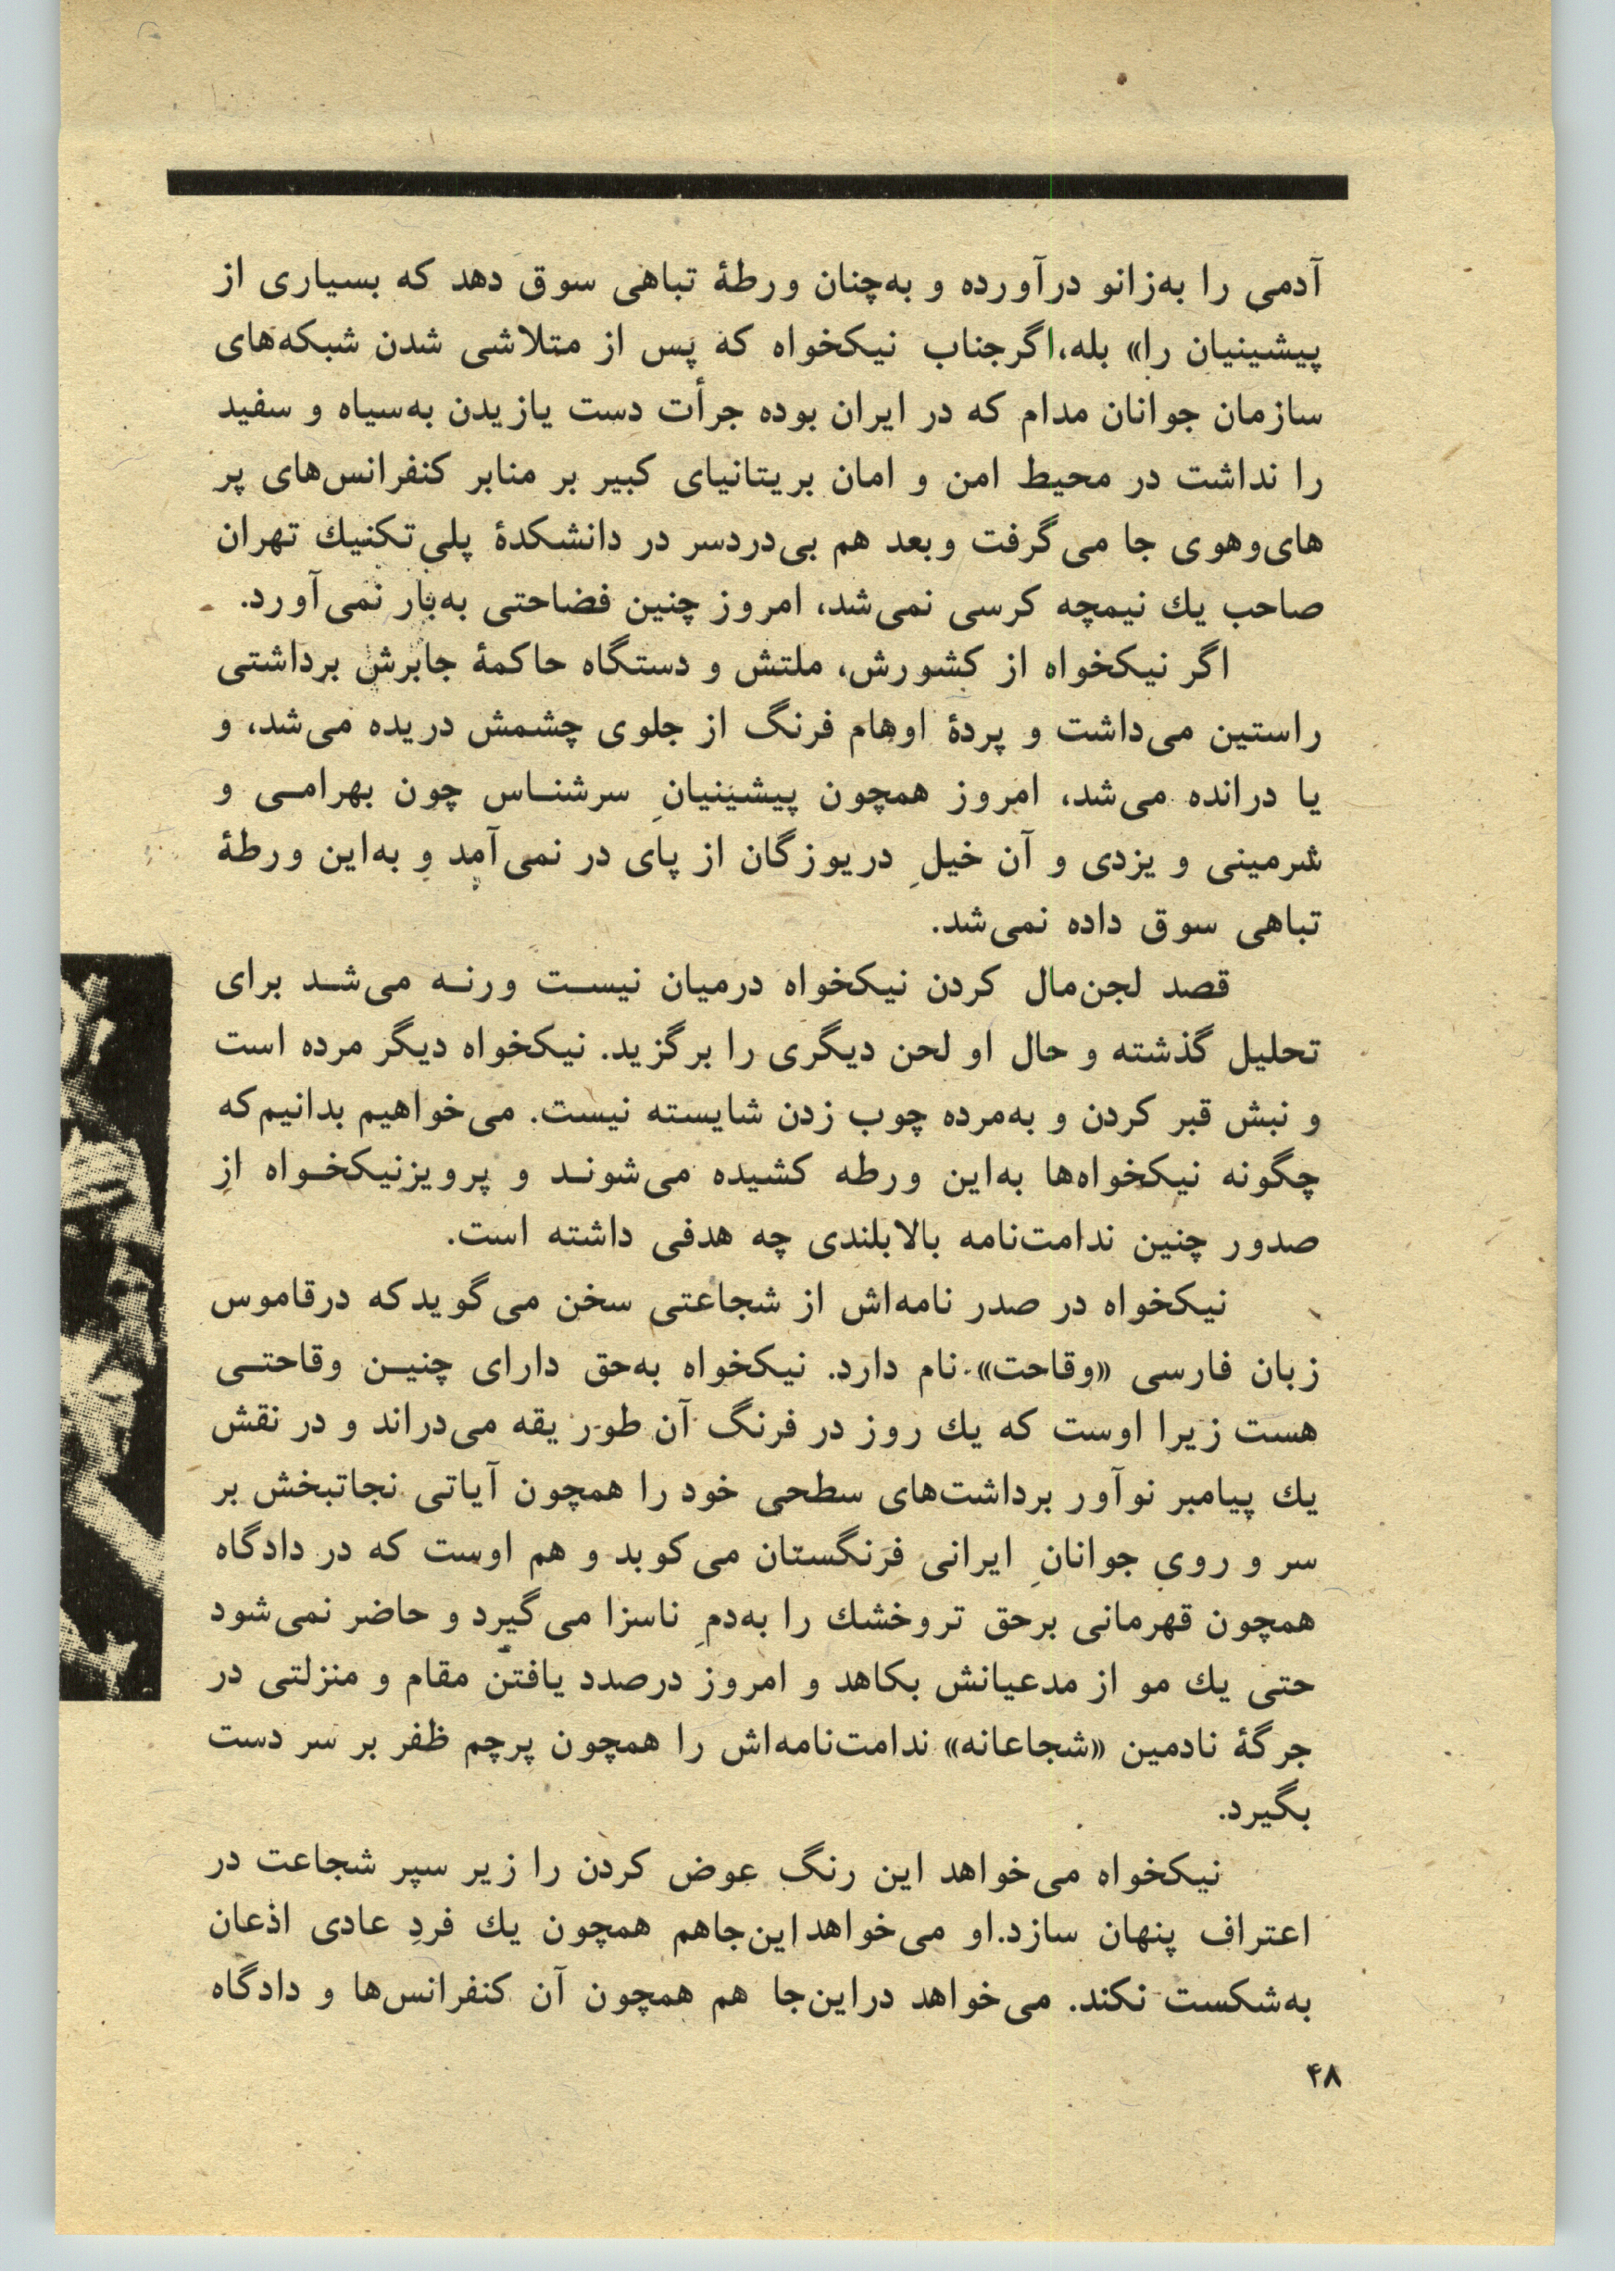 آدمی را به‌زانو درآورده و به‌چنان ورطهٔ تباهی سوق دهد که بسیاری از
پیشینیان را» بله، اگرجناب نیکخواه که پس از متلاشی شدن شبکه‌های
سازمان جوانان مدام که در ایران بوده جرأت دست یازیدن به‌سیاه و سفید
را نداشت در محیط امن و امان بریتانیای کبیر بر منابر کنفرانس‌های پر
های‌وهوی جا می‌گرفت وبعد هم بی‌دردسر در دانشکدهٔ پلی‌تکنیك تهران
صاحب یك نیمچه کرسی نمی‌شد، امروز چنین فضاحتی به‌بار نمی‌آورد.
اگر نیکخواه از کشورش، ملتش و دستگاه حاکمهٔ جابرش برداشتی
راستین می‌داشت و پردهٔ اوهام فرنگ از جلوی چشمش دریده می‌شد، و
یا درانده می‌شد، امروز همچون پیشینیانِ سرشنـاس چون بهرامـی و
شرمینی و یزدی و آن خیلِ دریوزگان از پای در نمی‌آمد و به‌این ورطهٔ
تباهی سوق داده نمی‌شد.
قصد لجن‌مال کردن نیکخواه درمیان نیسـت ورنـه می‌شـد برای
تحلیل گذشته و حال او لحن دیگری را برگزید. نیکخواه دیگر مرده است
و نبش قبر کردن و به‌مرده چوب زدن شایسته نیست. می‌خواهیم بدانیم‌که
چگونه نیکخواه‌ها به‌این ورطه کشیده می‌شونـد و پرویزنیکخـواه از
صدور چنین ندامت‌نامه بالابلندی چه هدفی داشته است.
نیکخواه در صدر نامه‌اش از شجاعتی سخن می‌گویدکه درقاموس
زبان فارسی «وقاحت» نام دارد. نیکخواه به‌حق دارای چنیـن وقاحتـی
هست زیرا اوست که یك روز در فرنگ آن طور یقه می‌دراند و در نقش
یك پیامبر نوآور برداشت‌های سطحی خود را همچون آیاتی نجاتبخش بر
سر و روی جوانانِ ایرانی فرنگستان می‌کوبد و هم اوست که در دادگاه
همچون قهرمانی برحق تروخشك را به‌دمِ ناسزا می‌گیرد و حاضر نمی‌شود
حتی یك مو از مدعیانش بکاهد و امروز درصدد یافتن مقام و منزلتی در
جرگهٔ نادمین «شجاعانه» ندامت‌نامه‌اش را همچون پرچم ظفر بر سر دست
بگیرد.
نیکخواه می‌خواهد این رنگ عوض کردن را زیر سپر شجاعت در
اعتراف پنهان سازد.او می‌خواهد این‌جاهم همچون یك فردِ عادی اذعان
به‌شکست نکند. می‌خواهد دراین‌جا هم همچون آن کنفرانس‌ها و دادگاه
۴۸